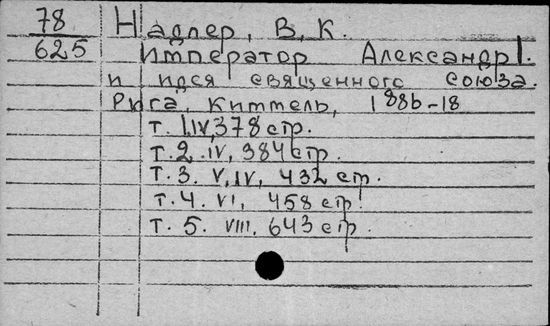 78 Надлер, В, К.
625 Император Александр I.
и идея священного союза.
Рига, Киммель, 1886-18
т. 1. IV, 378 стр.
т. 2. IV, 384 стр.
т. 3. V, IV, 432 стр.
т. 4. VI, 458 стр.
т. 5. VIII, 643 стр.